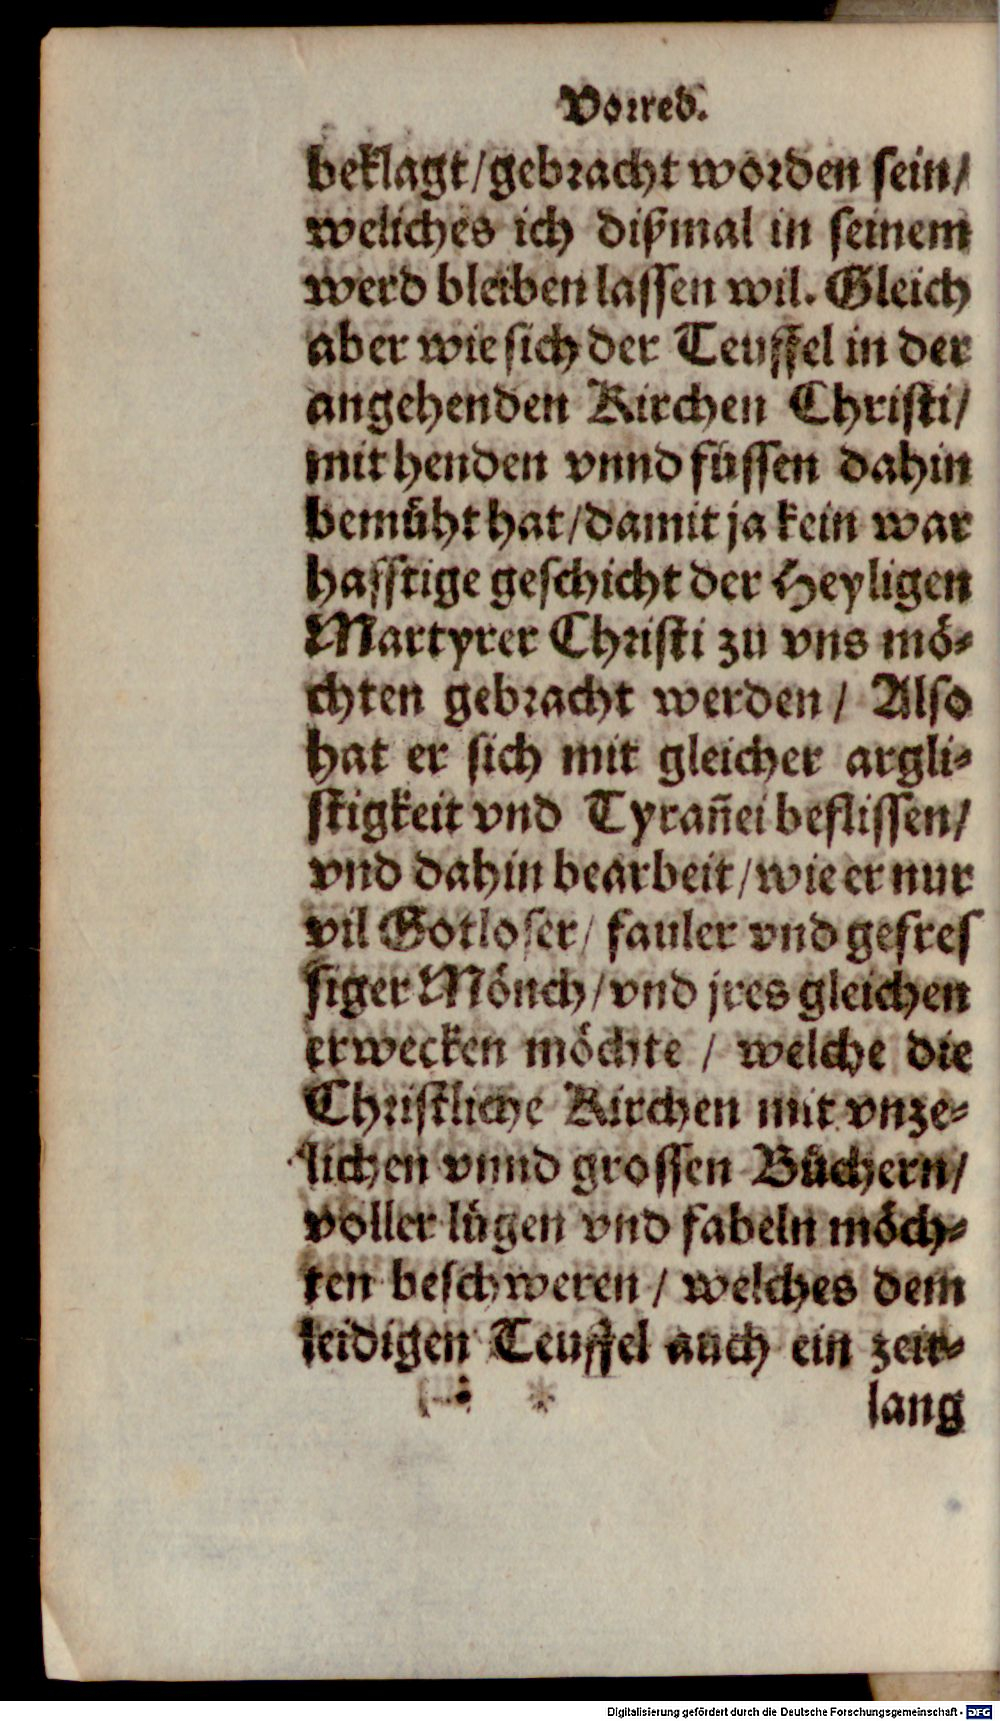 Vorred.
beklagt/gebracht worden sein/
weliches ich dißmal in seinem
werd bleiben lassen wil. Gleich
aber wie sich der Teuffel in der
angehenden Kirchen Christi/
mit henden vnnd füssen dahin
bemüht hat/damit ja kein war
hafftige geschicht der Heyligen
Martyrer Christi zu vns mö⸗
chten gebracht werden/ Also
hat er sich mit gleicher argli⸗
stigkeit vnd Tyrañei beflissen/
vnd dahin bearbeit/wie er nur
vil Gotloser/ fauler vnd gefres
siger Mönch/vnd jres gleichen
erwecken möchte / welche die
Christliche Kirchen mit vnze⸗
lichen vnnd grossen Büchern/
voller lügen vnd fabeln möch⸗
ten beschweren / welches dem
leidigen Teuffel auch ein zeit⸗
lang
Digitalisierung gefördert durch die Deutsche Forschungsgemeinschaft - DFG